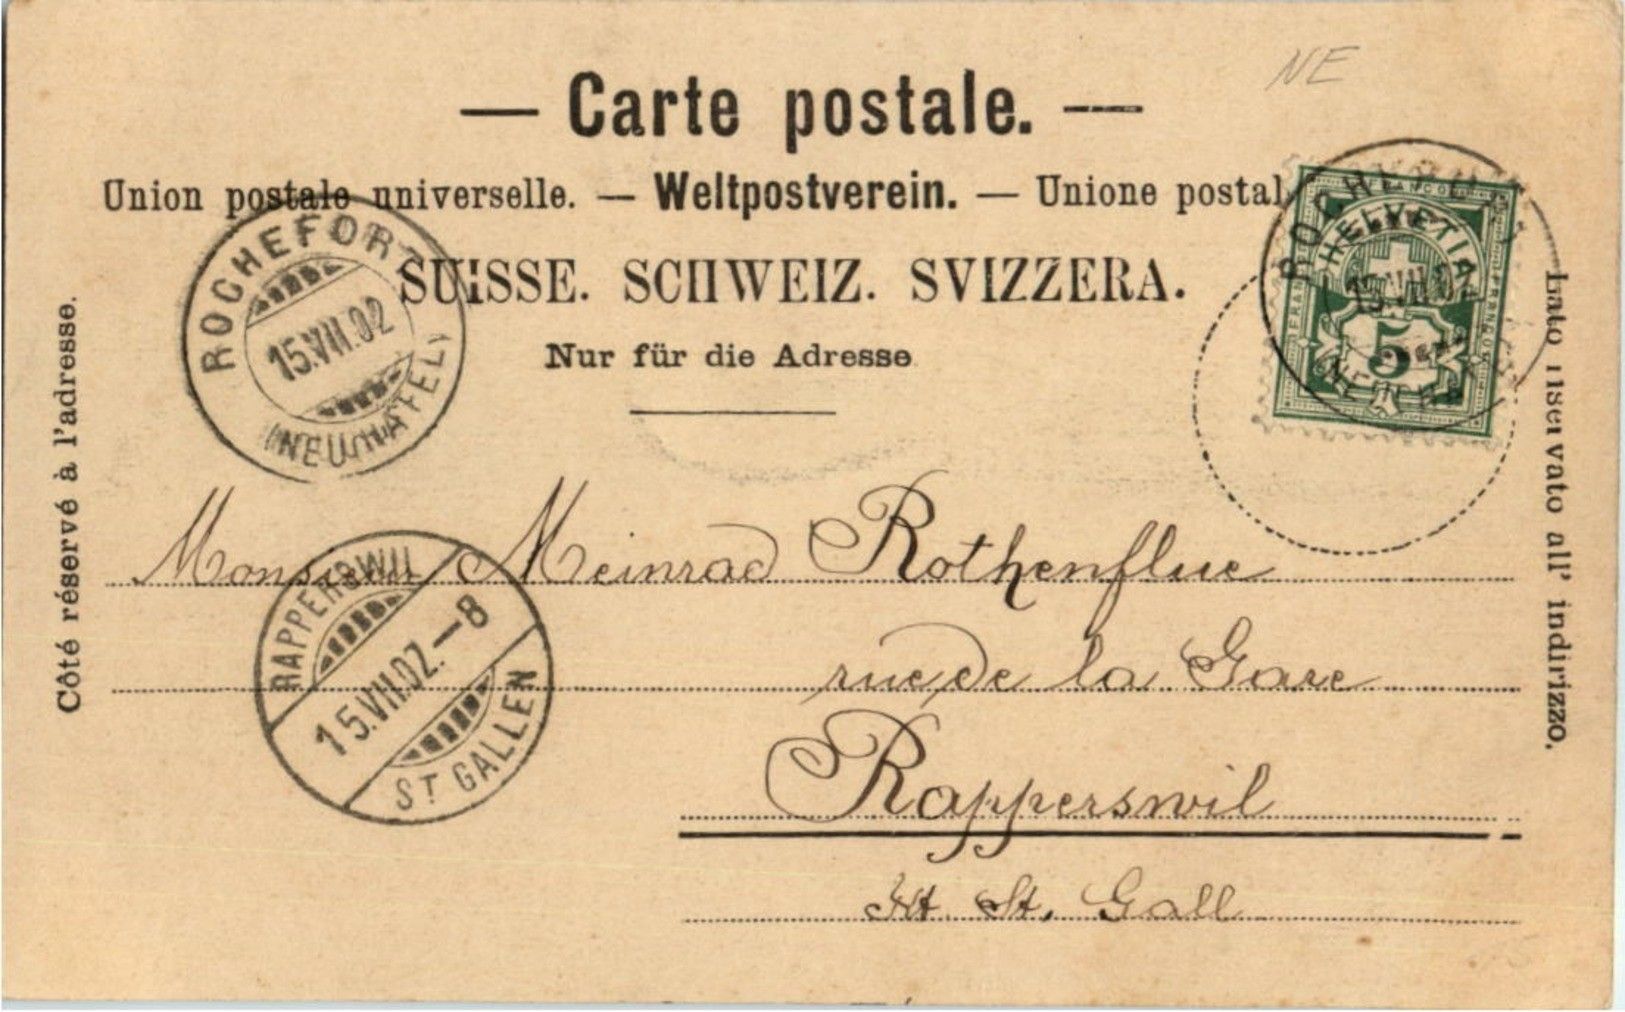 NE
— Carte postale. —
Union postale universelle. — Weltpostverein. — Unione postal
SUISSE. SCHWEIZ. SVIZZERA.
Nur für die Adresse
Côté réservé à l'adresse.
Lato riservato all' indirizzo.
ROCHEFORT
15.VII.02
(NEUCHÂTEL)
ROCHEFORT
15.VII.02
FRANCO
HELVETIA
5
Monsieur Meinrad Rothenflue
rue de la Gare
Rapperswil
Kt. St. Gall
RAPPERSWIL
15.VII.02.–8
ST GALLEN